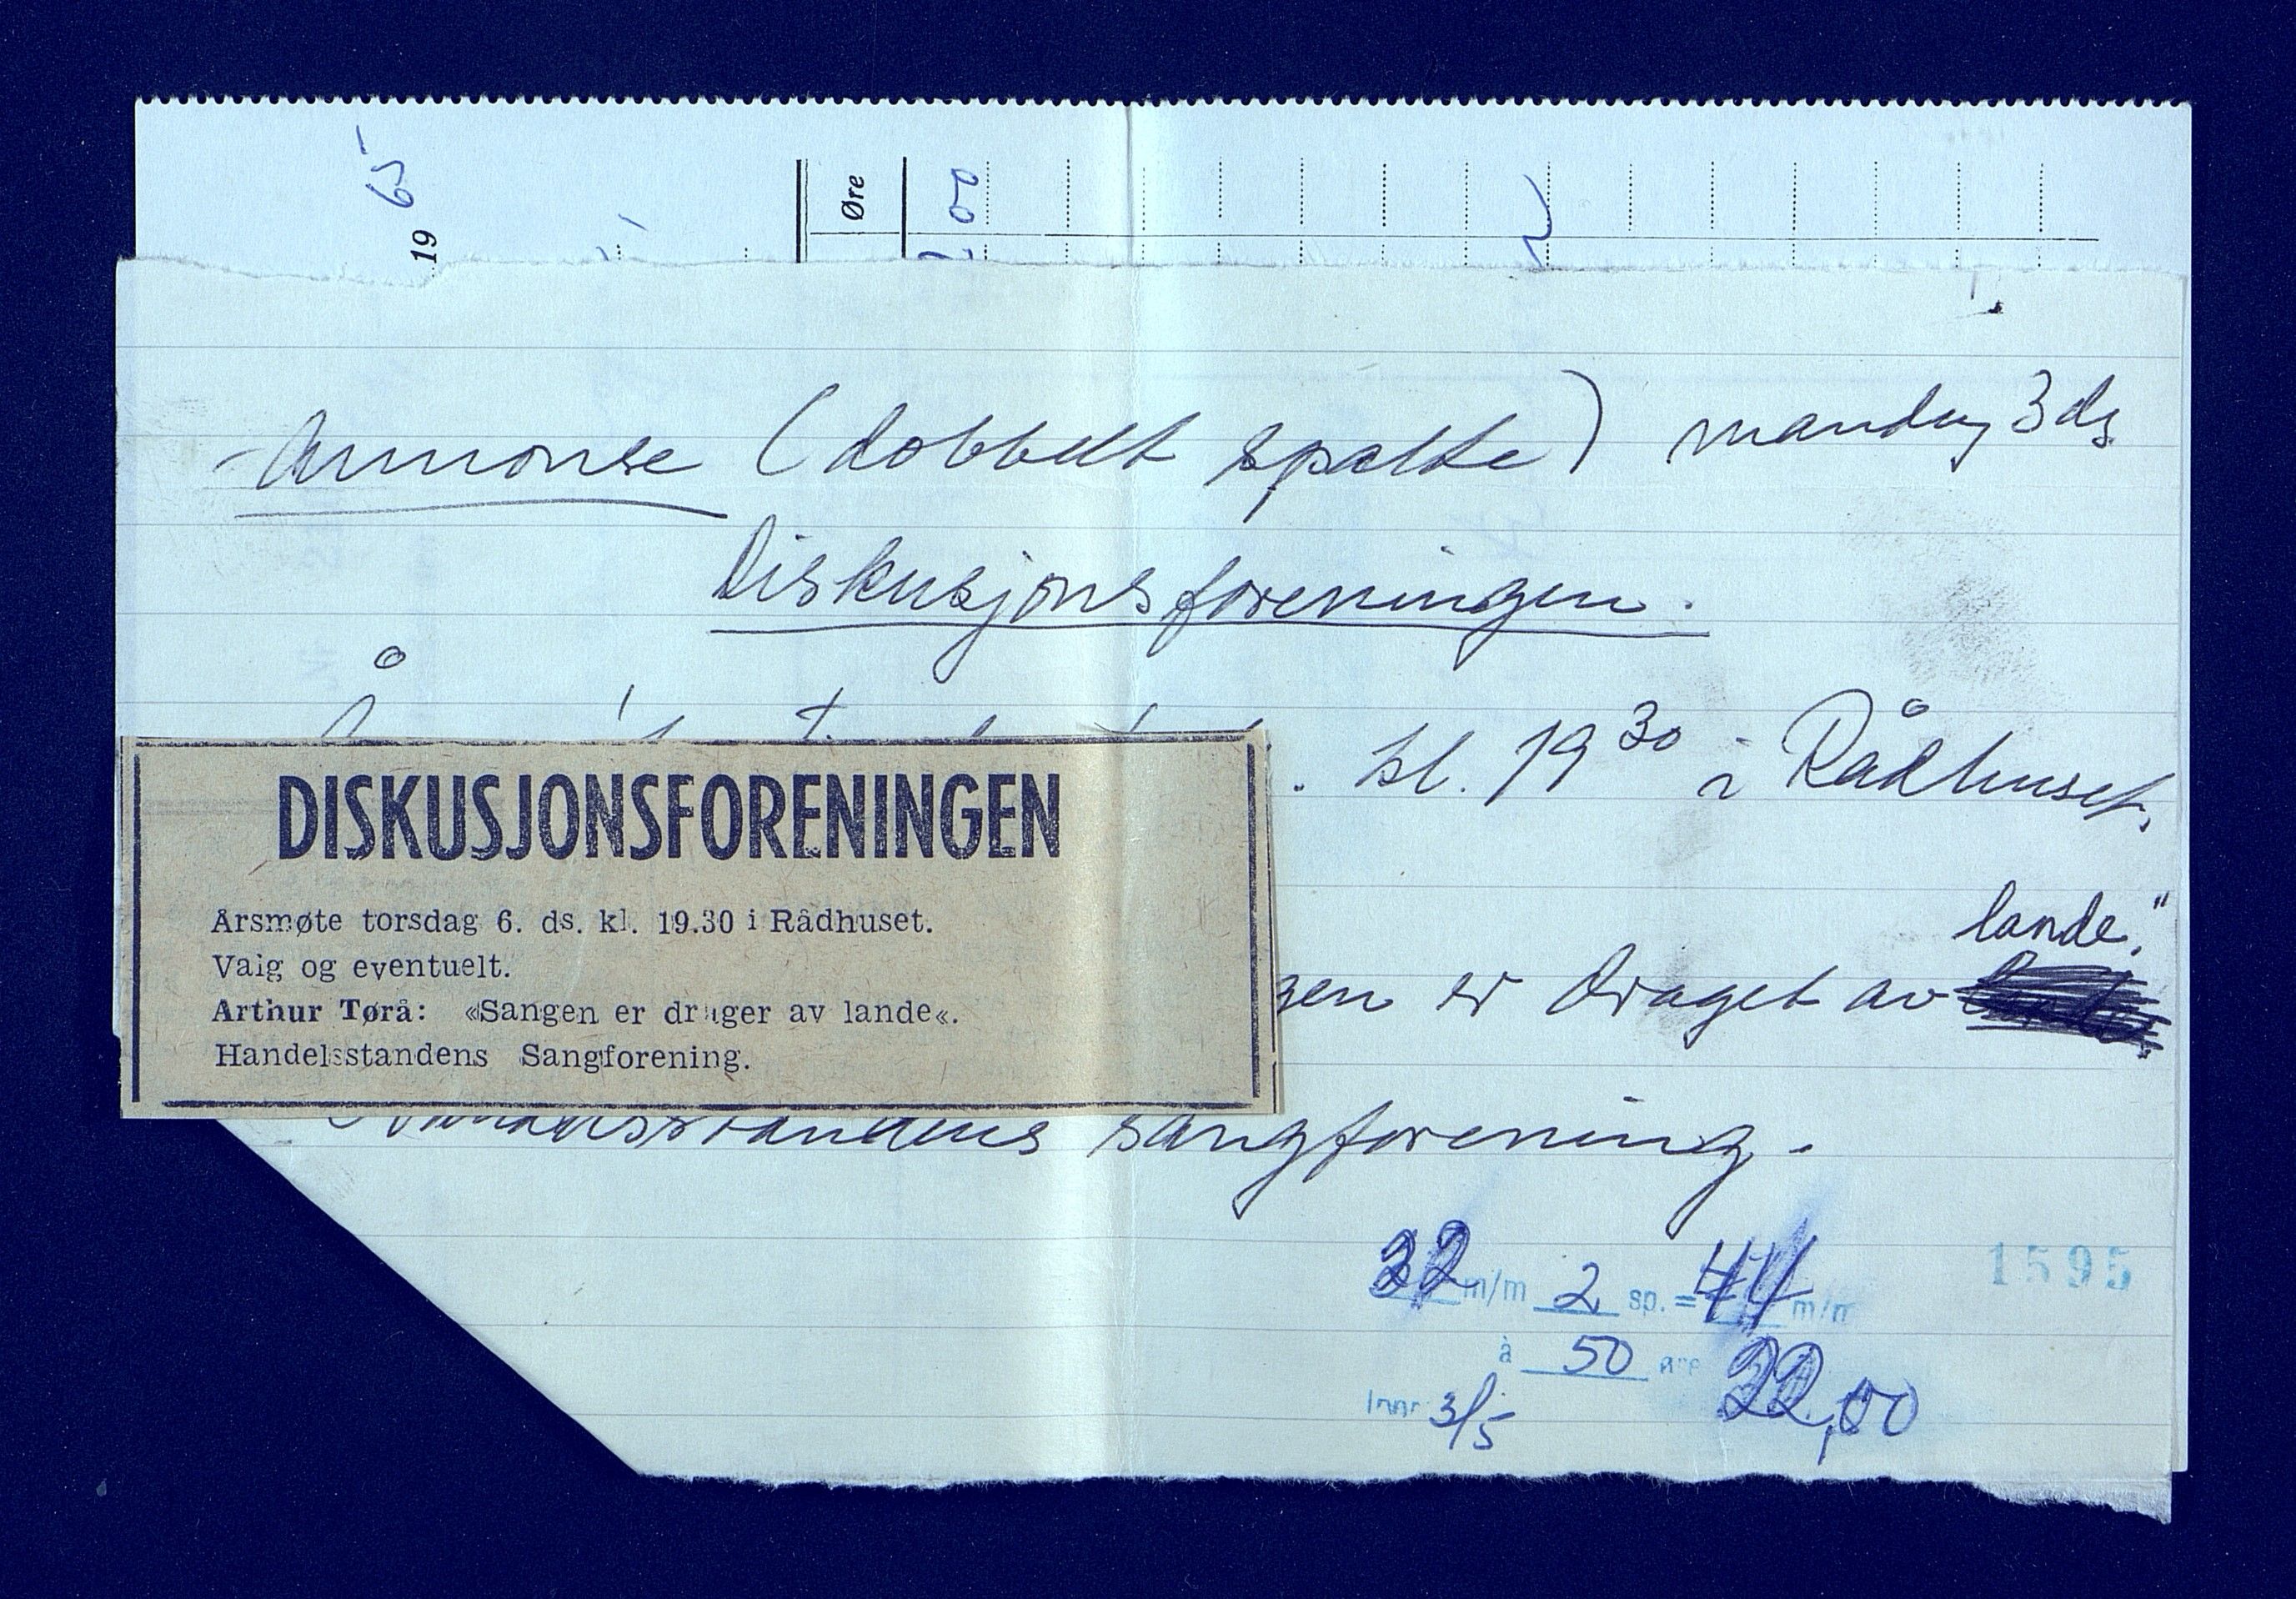 19 65
Øre
00
Annonse (dobbelt spalte) mandag 3 ds
Diskusjonsforeningen.
. kl. 19 30 i Rådhuset.
DISKUSJONSFORENINGEN
Årsmøte torsdag 6. ds. kl. 19.30 i Rådhuset.
Valg og eventuelt.
Arthur Tørå: «Sangen er drager av lande«.
Handelsstandens Sangforening.
lande."
gen er draget av
Handelsstandens sangforening.
22 m/m 2 sp. = 44 m/m
1595
à 50 øre 22,00
Innr. 3/5